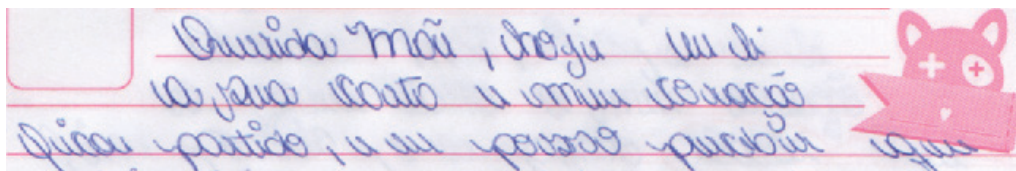 Querida Mãe, hoje eu li
a sua carta e meu coração
ficou partido, e eu posso perceber que